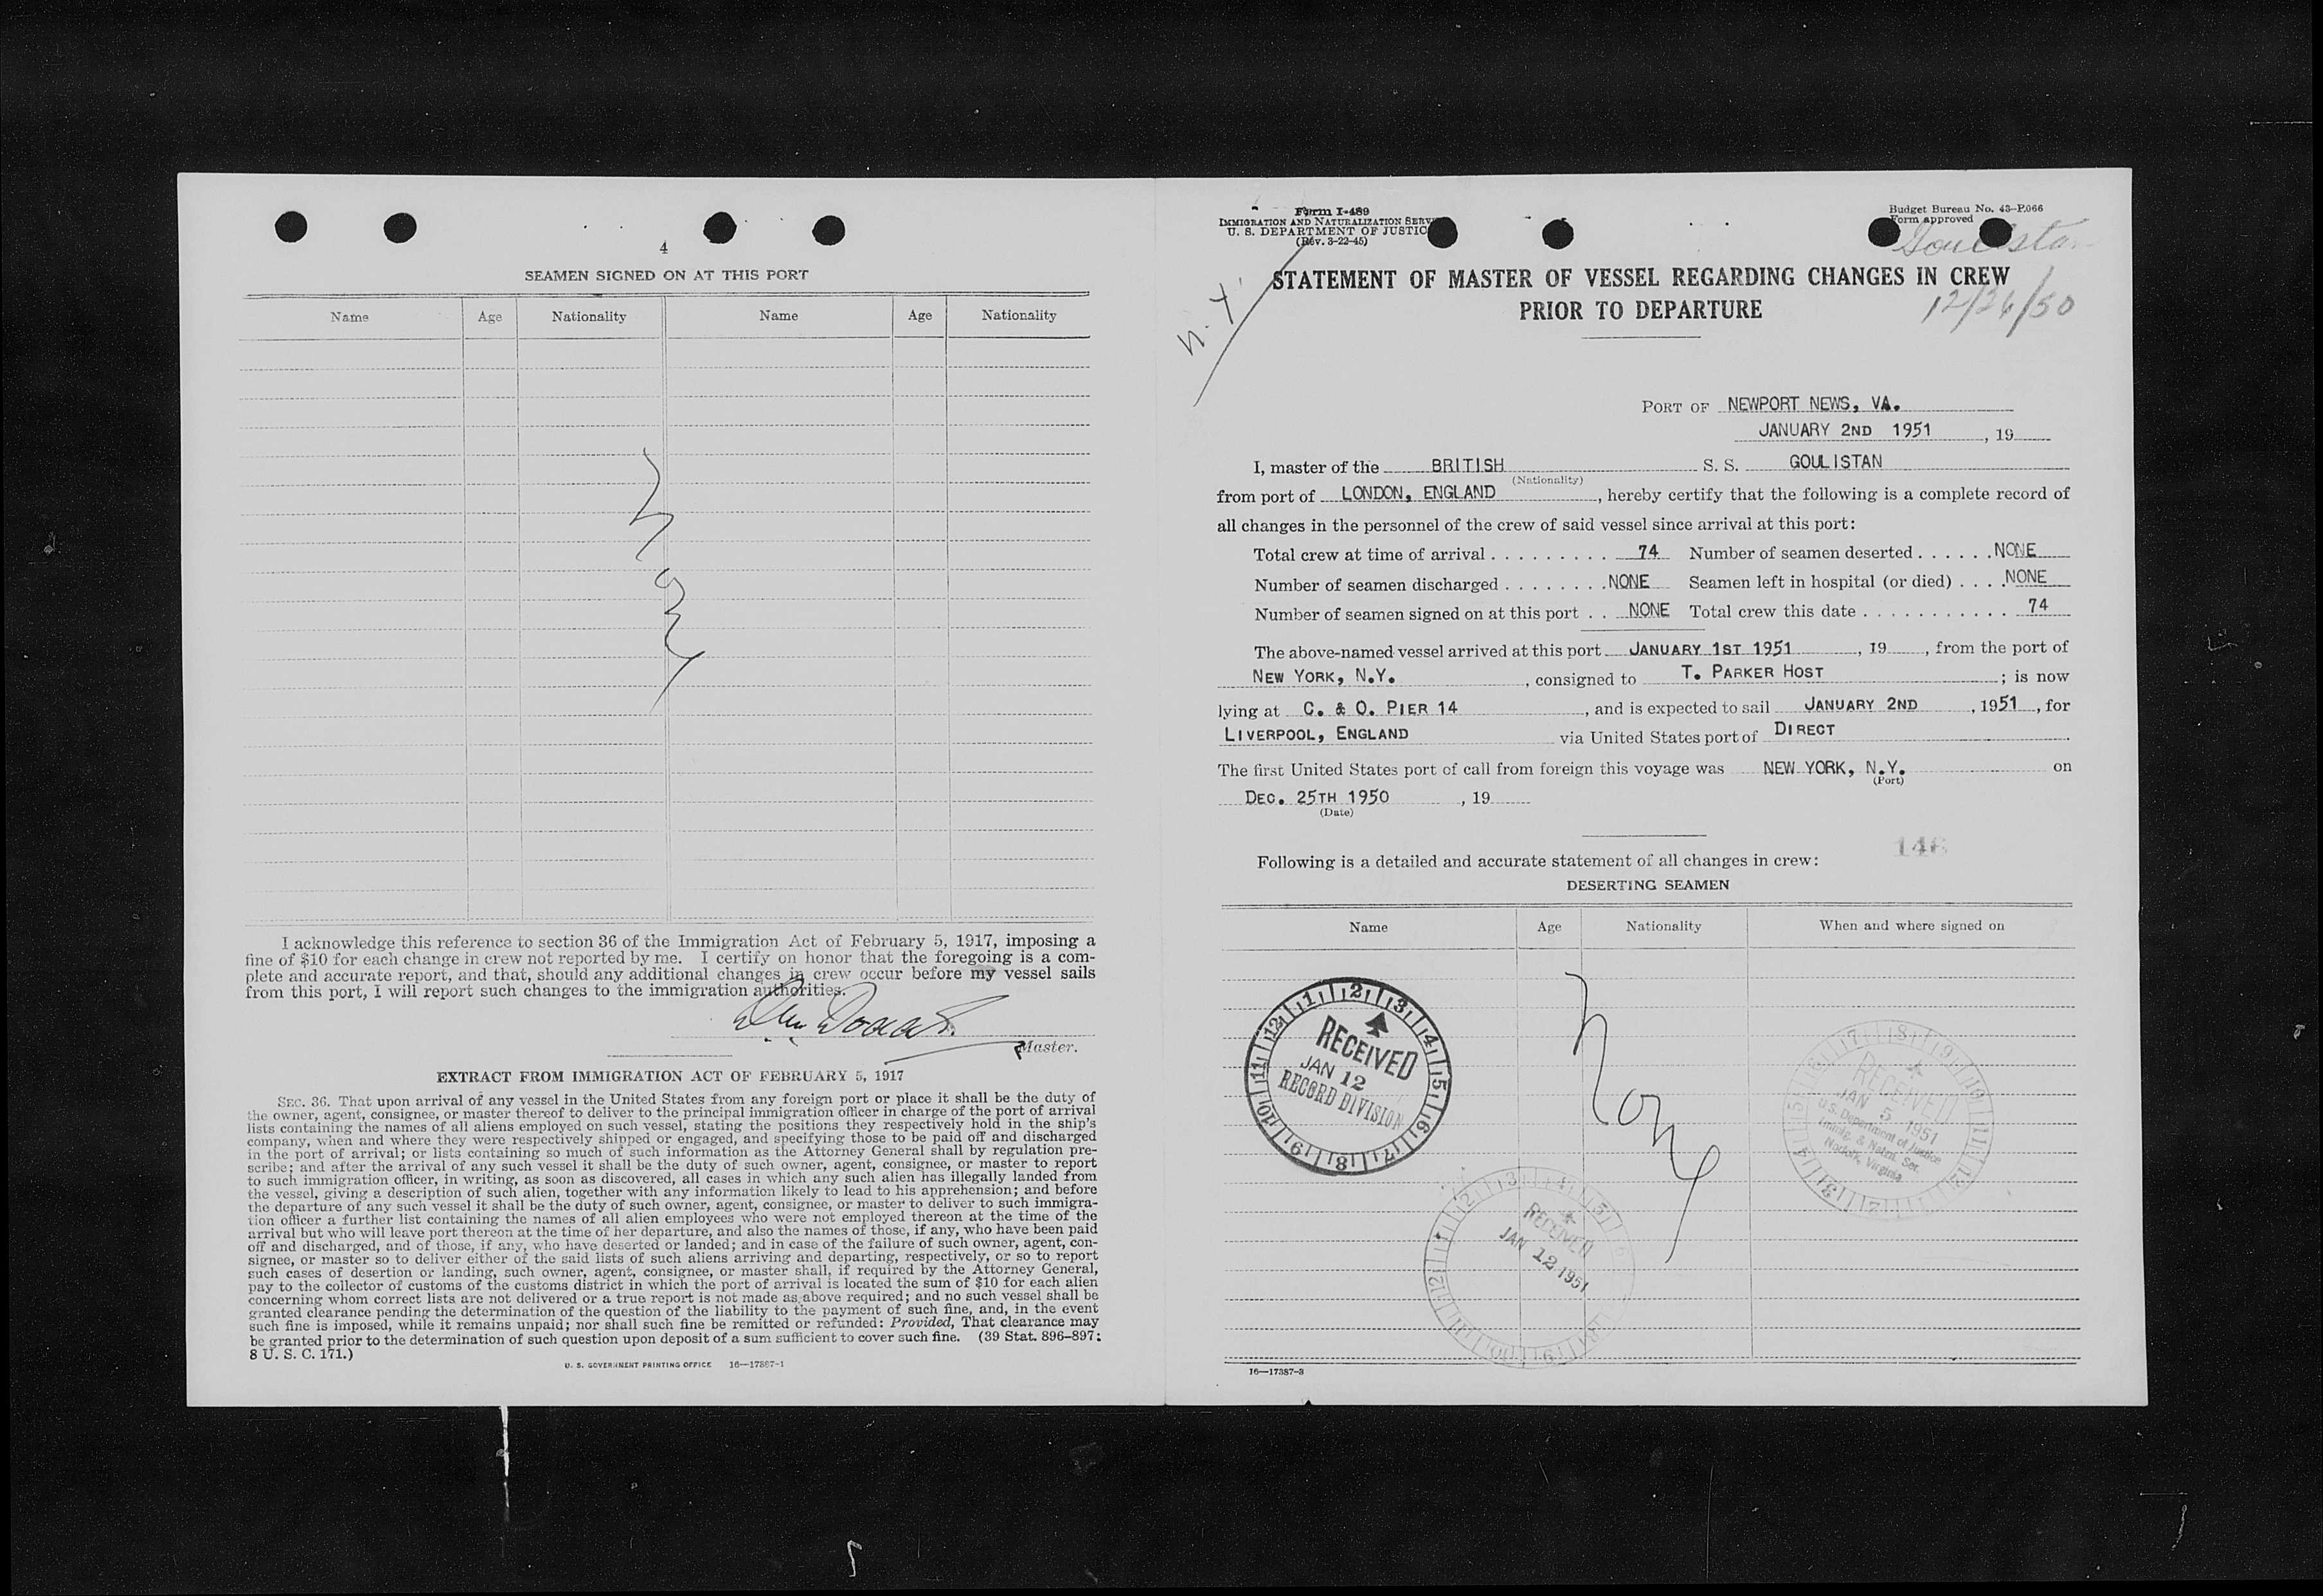 4
SEAMEN SIGNED ON AT THIS PORT
Name Age Nationality Name Age Nationality
None
I acknowledge this reference to section 36 of the Immigration Act of February 5, 1917, imposing a
fine of $10 for each change in crew not reported by me. I certify on honor that the foregoing is a com-
plete and accurate report, and that, should any additional changes in crew occur before my vessel sails
from this port, I will report such changes to the immigration authorities.
Master.
EXTRACT FROM IMMIGRATION ACT OF FEBRUARY 5, 1917
SEC. 36. That upon arrival of any vessel in the United States from any foreign port or place it shall be the duty of
the owner, agent, consignee, or master thereof to deliver to the principal immigration officer in charge of the port of arrival
lists containing the names of all aliens employed on such vessel, stating the positions they respectively hold in the ship's
company, when and where they were respectively shipped or engaged, and specifying those to be paid off and discharged
in the port of arrival; or lists containing so much of such information as the Attorney General shall by regulation pre-
scribe; and after the arrival of any such vessel it shall be the duty of such owner, agent, consignee, or master to report
to such immigration officer, in writing, as soon as discovered, all cases in which any such alien has illegally landed from
the vessel, giving a description of such alien, together with any information likely to lead to his apprehension; and before
the departure of any such vessel it shall be the duty of such owner, agent, consignee, or master to deliver to such immigra-
tion officer a further list containing the names of all alien employees who were not employed thereon at the time of the
arrival but who will leave port thereon at the time of her departure, and also the names of those, if any, who have been paid
off and discharged, and of those, if any, who have deserted or landed; and in case of the failure of such owner, agent, con-
signee, or master so to deliver either of the said lists of such aliens arriving and departing, respectively, or so to report
such cases of desertion or landing, such owner, agent, consignee, or master shall, if required by the Attorney General,
pay to the collector of customs of the customs district in which the port of arrival is located the sum of $10 for each alien
concerning whom correct lists are not delivered or a true report is not made as above required; and no such vessel shall be
granted clearance pending the determination of the question of the liability to the payment of such fine, and, in the event
such fine is imposed, while it remains unpaid; nor shall such fine be remitted or refunded: Provided, That clearance may
be granted prior to the determination of such question upon deposit of a sum sufficient to cover such fine. (39 Stat. 896-897;
8 U. S. C. 171.)
U. S. GOVERNMENT PRINTING OFFICE 16—17387-1
Form I-489
IMMIGRATION AND NATURALIZATION
U. S. DEPARTMENT OF
(Rev. 3-22-45)
Budget Bureau No. 43-R066
Form approved
Goulistan
12/26/50
N.Y.
STATEMENT OF MASTER OF VESSEL REGARDING CHANGES IN CREW
PRIOR TO DEPARTURE
PORT OF NEWPORT NEWS, VA.
JANUARY 2ND 1951 , 19
I, master of the BRITISH S. S. GOULISTAN
(Nationality)
from port of LONDON, ENGLAND , hereby certify that the following is a complete record of
all changes in the personnel of the crew of said vessel since arrival at this port:
Total crew at time of arrival . . . . . . . . . 74 Number of seamen deserted . . . . . . NONE
Number of seamen discharged . . . . . . . . NONE Seamen left in hospital (or died) . . . . NONE
Number of seamen signed on at this port . . NONE Total crew this date . . . . . . . . . . . . 74
The above-named vessel arrived at this port JANUARY 1ST 1951 , 19 , from the port of
NEW YORK, N.Y. , consigned to T. PARKER HOST ; is now
lying at C. & O. PIER 14 , and is expected to sail JANUARY 2ND , 1951 , for
LIVERPOOL, ENGLAND via United States port of DIRECT
The first United States port of call from foreign this voyage was NEW YORK, N.Y. on
(Port)
DEC. 25TH 1950 , 19
(Date)
146
Following is a detailed and accurate statement of all changes in crew:
DESERTING SEAMEN
Name Age Nationality When and where signed on
None
1 2 3 4 5 6 7 8 9 10 11 12
RECEIVED
JAN 12
RECORD DIVISION
RECEIVED
JAN 5 1951
U.S. Department of Justice
Immig. & Natzn. Ser.
Norfolk, Virginia
RECEIVED
JAN 12 1951
16—17387-3